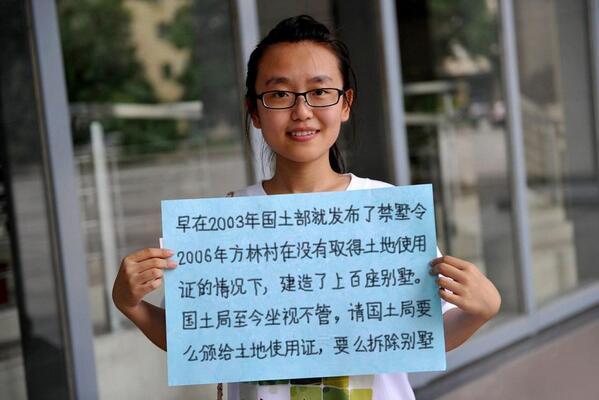 早在2003年国土部就发布了禁墅令
2006年方林村在没有取得土地使用
证的情况下，建造了上百座别墅。
国土局至今坐视不管，请国土局要
么颁给土地使用证，要么拆除别墅